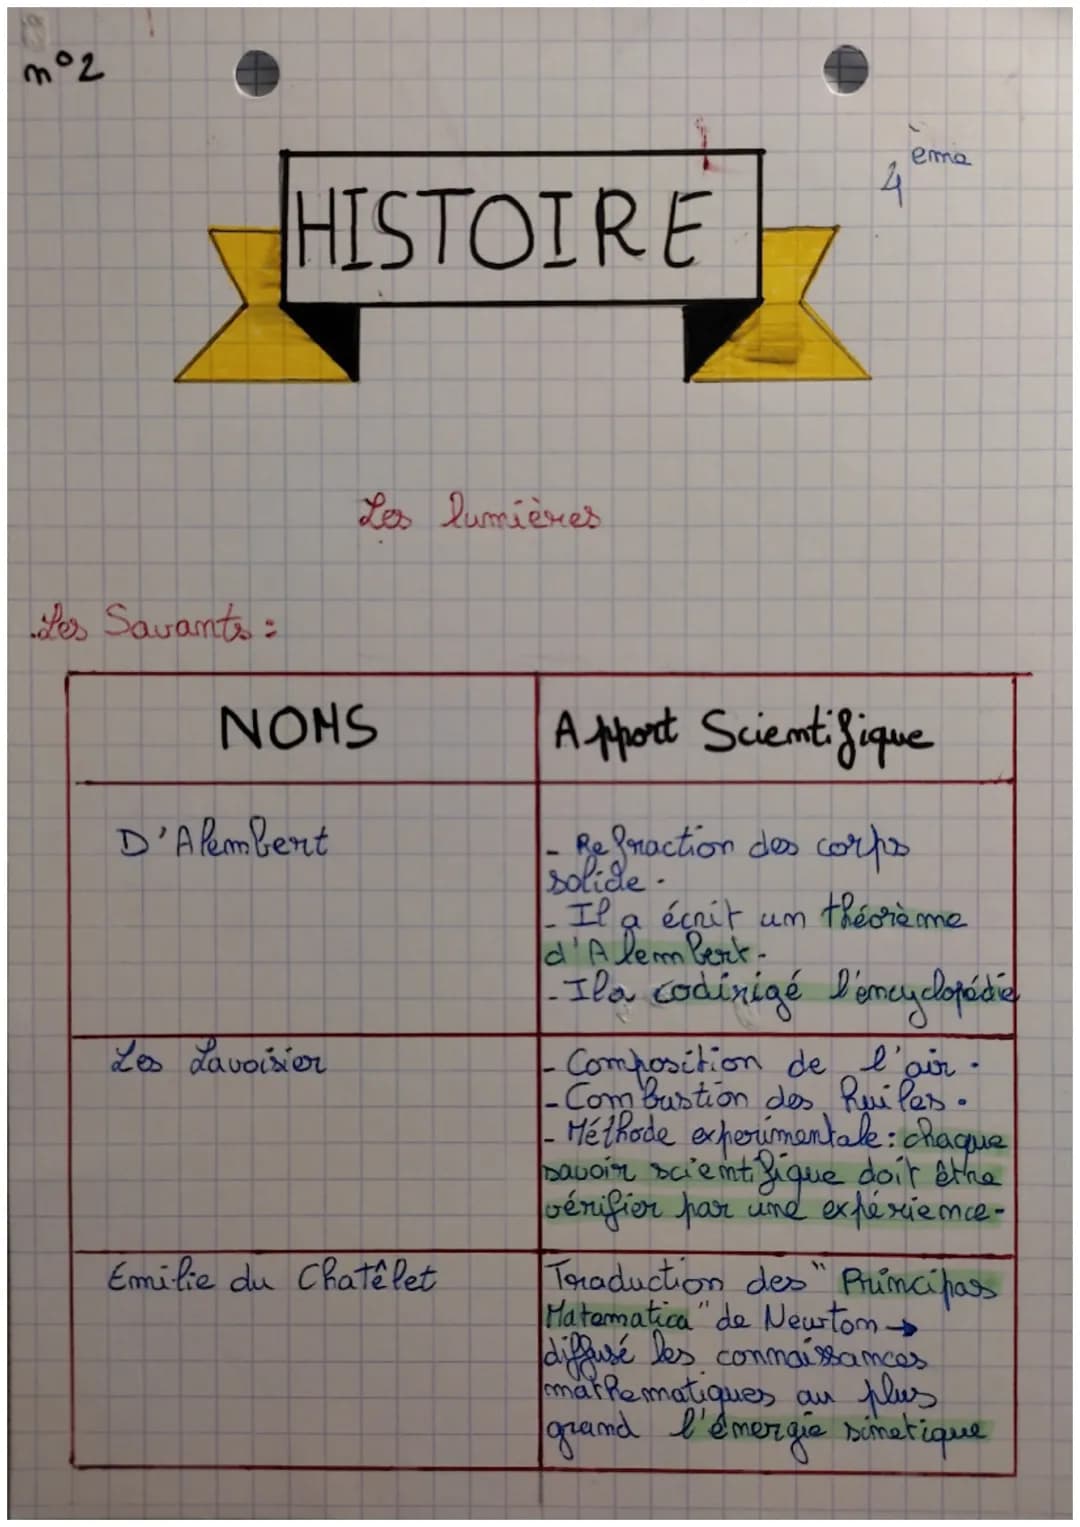 n°2
4ème
HISTOIRE
Les lumières
.Les Savants :
NOMS
Apport Scientifique
D'Alembert
- Refraction des corps
solide.
- Il a écrit un théorème
d'Alembert.
- Il a codirigé l'encyclopédie
Les Lavoisier
- Composition de l'air.
- Combustion des huiles.
- Méthode experimentale : chaque
savoir scientifique doit être
vérifier par une expérience.
Emilie du Chatêlet
Traduction des " Principas
Matematica" de Newton →
diffusé les connaissances
mathematiques au plus
grand l'énergie sinetique